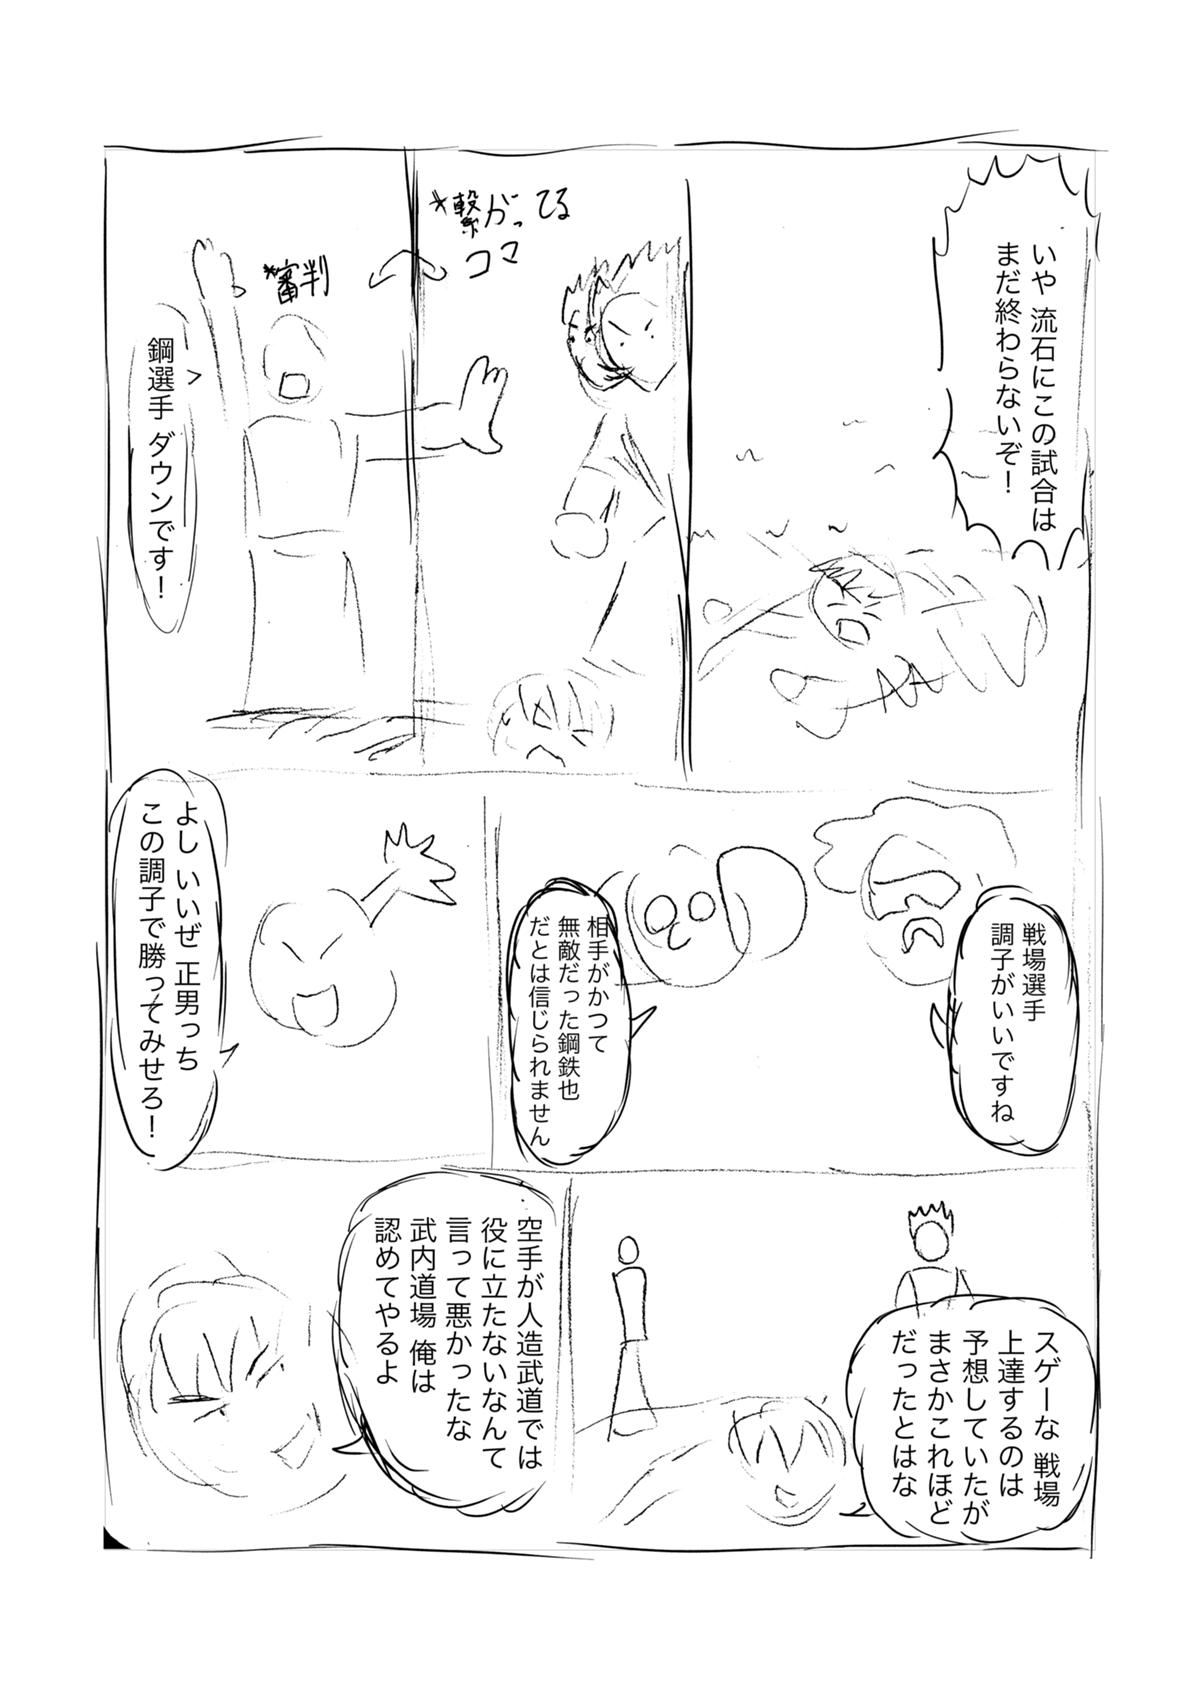 いや 流石にこの試合は
まだ終わらないぞ！
*繋がってる
コマ
*審判
鋼選手 ダウンです！
戦場選手
調子がいいですね
相手がかつて
無敵だった鋼鉄也
だとは信じられません
よし いいぜ 正男っち
この調子で勝ってみせろ！
スゲーな 戦場
上達するのは
予想していたが
まさかこれほど
だったとはな
空手が人造武道では
役に立たないなんて
言って悪かったな
武内道場 俺は
認めてやるよ